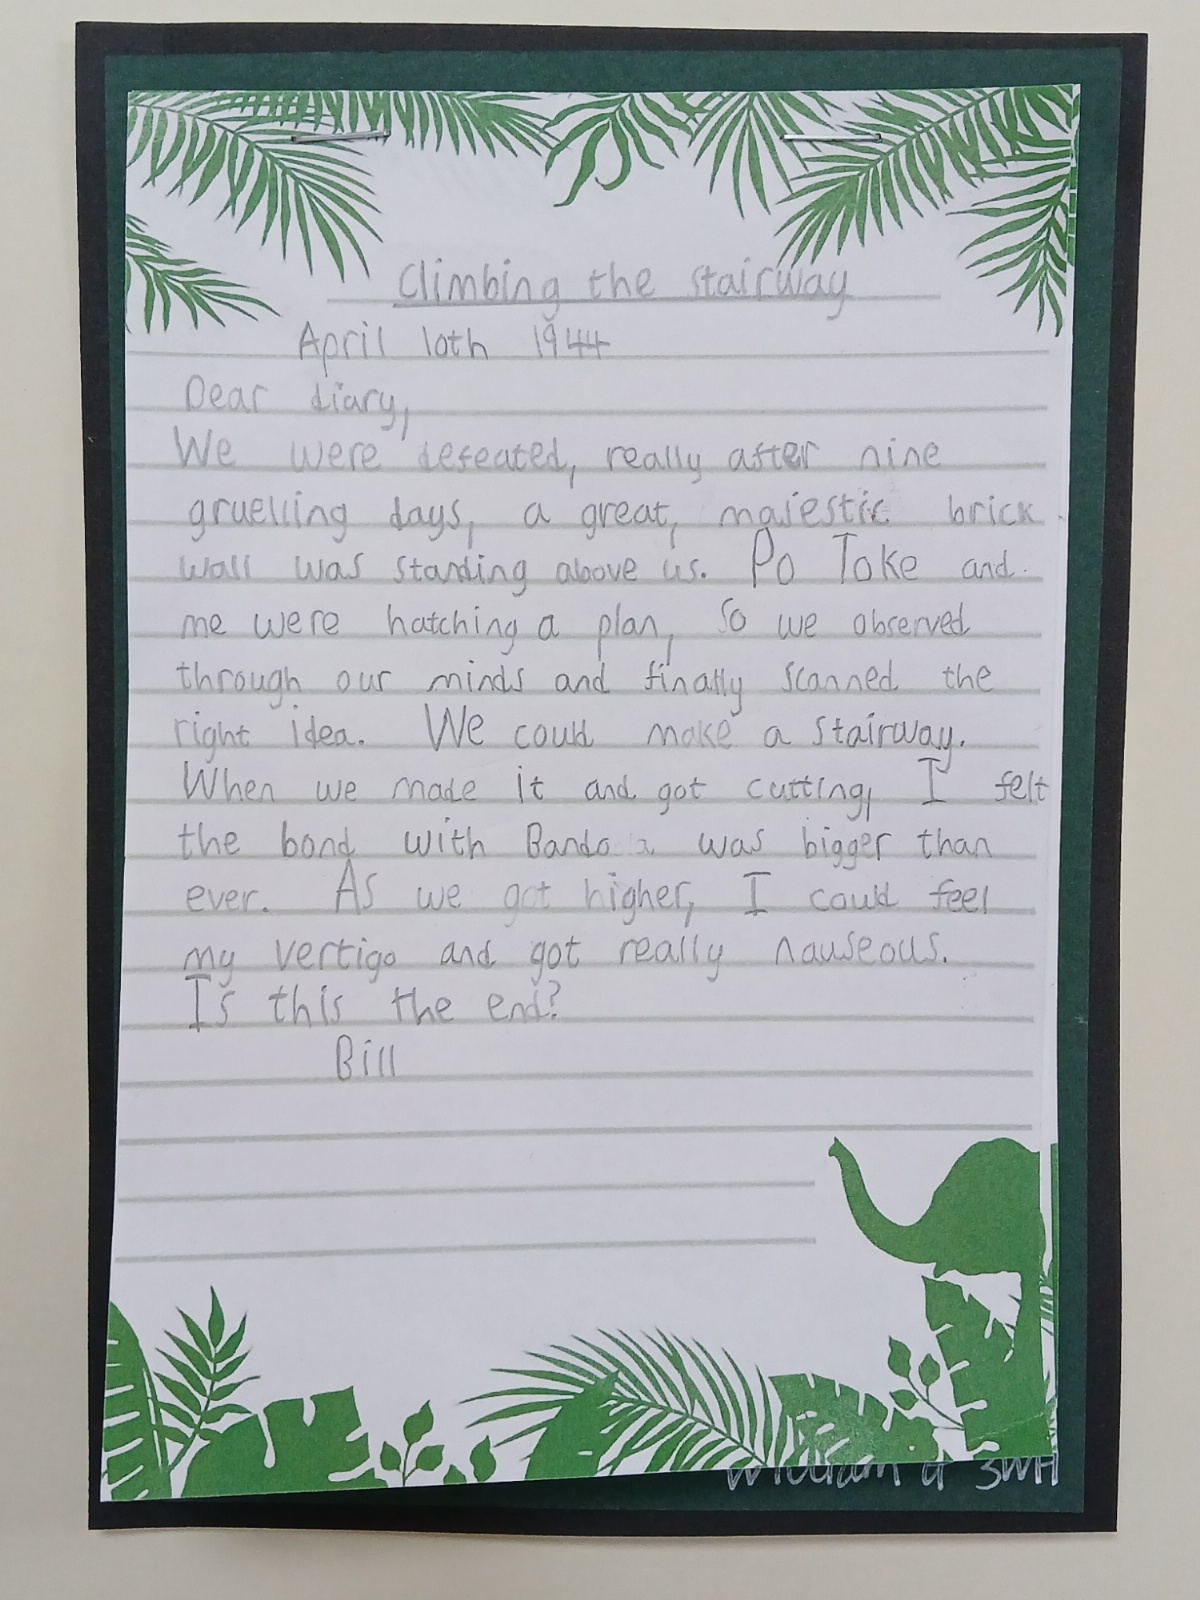 Climbing the stairway
April 10th 1944
Dear diary,
We were defeated, really after nine
gruelling days, a great, majestic brick
wall was standing above us. Po Toke and
me were hatching a plan, so we observed
through our minds and finally scanned the
right idea. We could make a stairway.
When we made it and got cutting, I felt
the bond with Bandoola was bigger than
ever. As we got higher, I could feel
my vertigo and got really nauseous.
Is this the end?
Bill
William 3WH